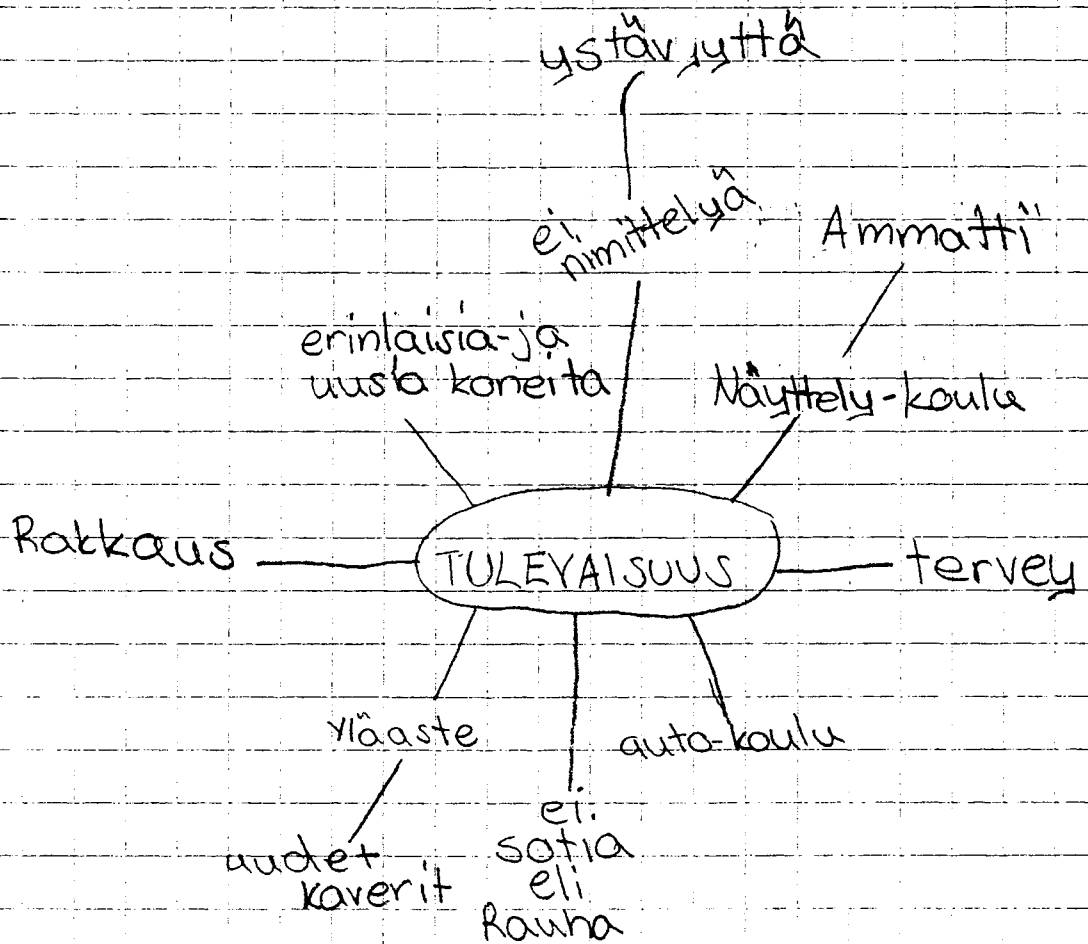 ystävyyttä
ei
nimittelyä
Ammatti
erinlaisia-ja
uusia koneita
Näyttely-koulu
Rakkaus
TULEVAISUUS
tervey
yläaste
auto-koulu
uudet
kaverit
ei
sotia
eli
Rauha